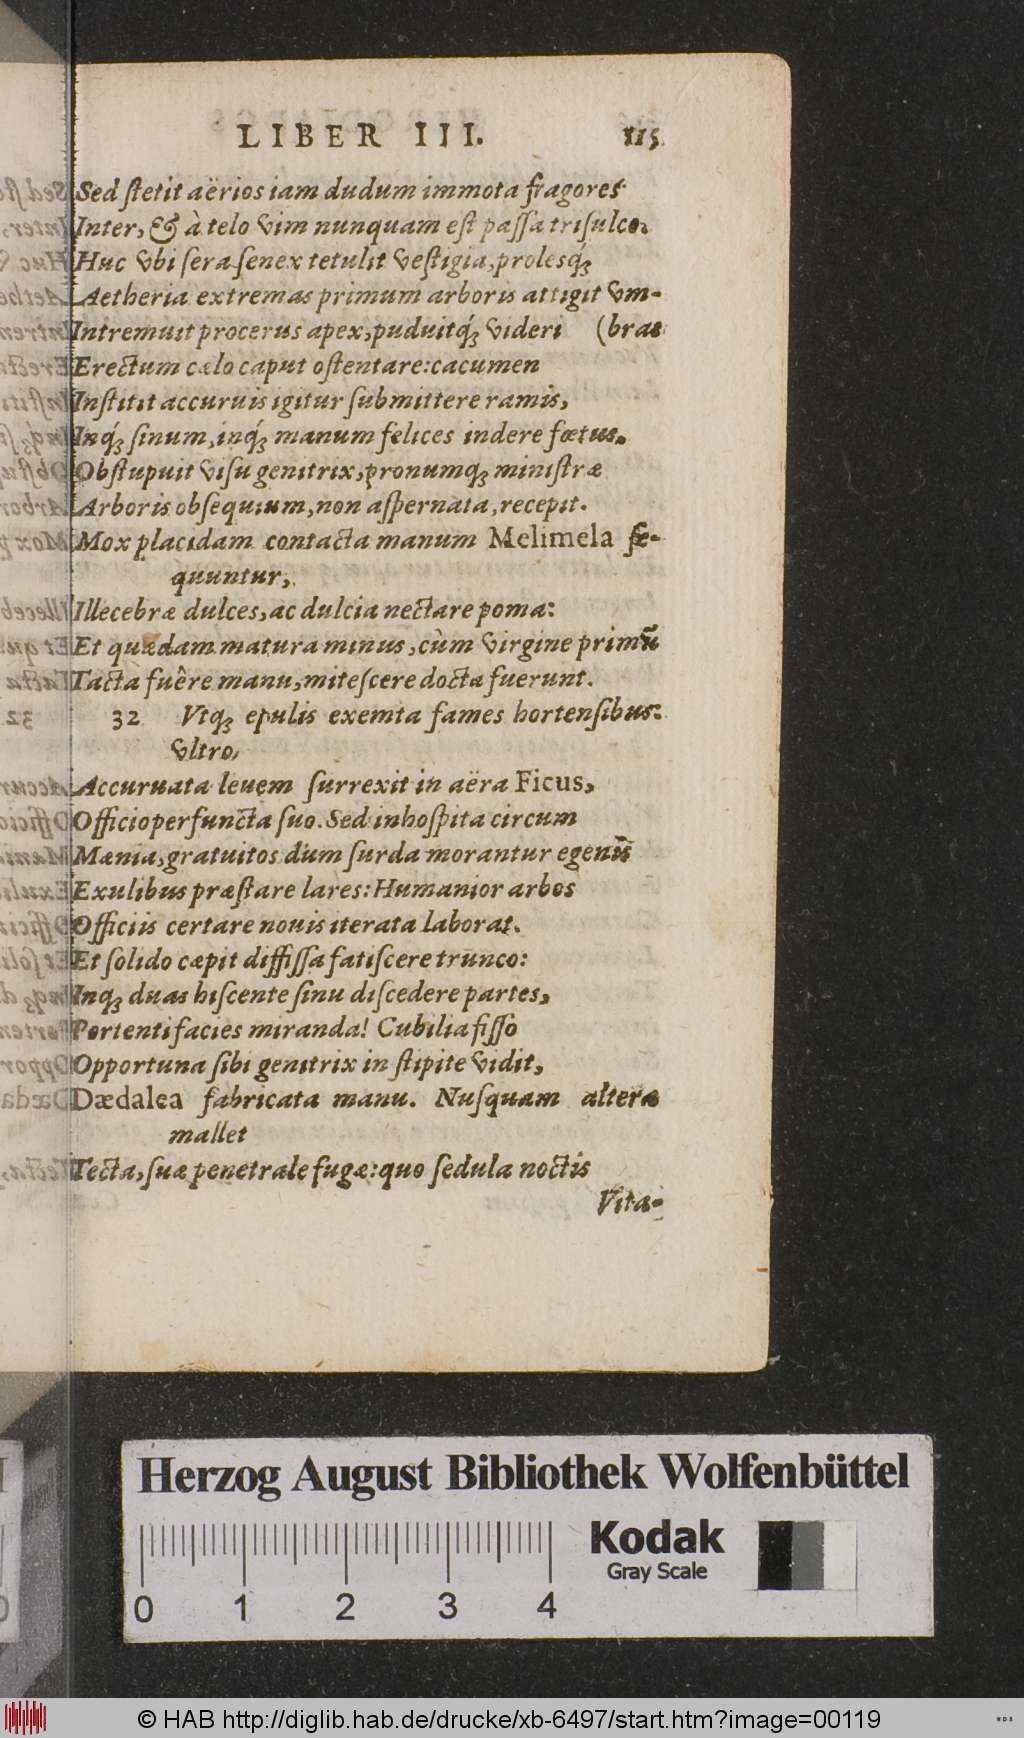 LIBER III. 115.
Sed ſtetit aërios iam dudum immota fragores
Inter, & à telo vim nunquam eſt paſſa triſulco.
Huc vbi ſera ſenex tetulit veſtigia, prolesq́ꝫ
Aetheria extremas primum arboris attigit vm-
Intremuit procerus apex, puduitq́ꝫ videri (bras
Erectum cælo caput oſtentare: cacumen
Inſtitit accuruis igitur ſubmittere ramis,
Inq́ꝫ ſinum, inq́ꝫ manum felices indere fœtus.
Obſtupuit viſu genitrix, pronumqꝫ miniſtræ
Arboris obſequium, non aſpernata, recepit.
Mox placidam contacta manum Melimela ſe-
quuntur,
Illecebræ dulces, ac dulcia nectare poma:
Et quædam matura minus, cùm virgine primũ
Tacta fuêre manu, miteſcere docta fuerunt.
32 Vtqꝫ epulis exemta fames hortenſibus:
vltro,
Accuruata leuem ſurrexit in aëra Ficus,
Officio perfuncta ſuo. Sed inhoſpita circum
Mænia, gratuitos dum ſurda morantur egenũ
Exulibus præſtare lares: Humanior arbos
Officiis certare nouis iterata laborat.
Et ſolido cæpit diffiſſa fatiſcere trunco:
Inqꝫ duas hiſcente ſinu diſcedere partes,
Portenti facies miranda! Cubilia fiſſo
Opportuna ſibi genitrix in ſtipite vidit,
Dædalea fabricata manu. Nuſquam altera
mallet
Tecta, ſuæ penetrale fugæ: quo ſedula noctis
Vita-
Herzog August Bibliothek Wolfenbüttel
Kodak
Gray Scale
0 1 2 3 4
© HAB http://diglib.hab.de/drucke/xb-6497/start.htm?image=00119